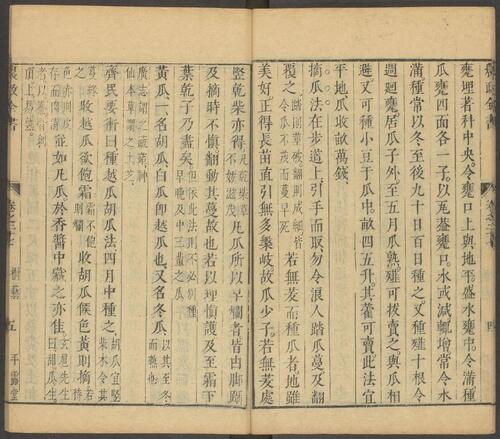 農政全書
卷之二十七
四
甕埋著科中央令甕口上與地平盛水甕中令滿種
瓜甕四面各一子以瓦盆甕口水或減輒增常令水
滿種常以冬至後九十日百日種之又種薤十根令
週迴甕居瓜子外至五月瓜熟薤可拔賣之與瓜相
避又可種小豆于瓜中畝四五升其藿可賣此法宜
平地瓜收畝萬錢
摘瓜法在步道上引手而取勿令浪人踏瓜蔓及翻
覆之踏則莖破翻則成細皆令瓜不茂而蔓早死若無茇而種瓜者地雖
美好正得長苗直引無多槃岐故瓜少子若無茇處
豎乾柴亦得凡乾柴草不妨滋茂凡瓜所以早爛者皆由脚躡
及摘時不慎翻動其蔓故也若以理慎護及至霜下
葉乾子乃盡矣但依此法則不必別種早晚及中三輩之瓜
黃瓜一名胡瓜白瓜即越瓜也又名冬瓜以其至冬而熟也
廣志謂之蔬神仙本草謂之土芝
齊民要術曰種越瓜胡瓜法四月中種之胡瓜宜豎柴木令其
蔓緣之收越瓜欲飽霜霜不飽則爛收胡瓜候色黃則摘若待
色赤則皮存而肉消並如凡瓜於香醬中藏之亦佳玄扈先生曰
頂上
農政全書
卷之二十七
樹藝
五
平露堂